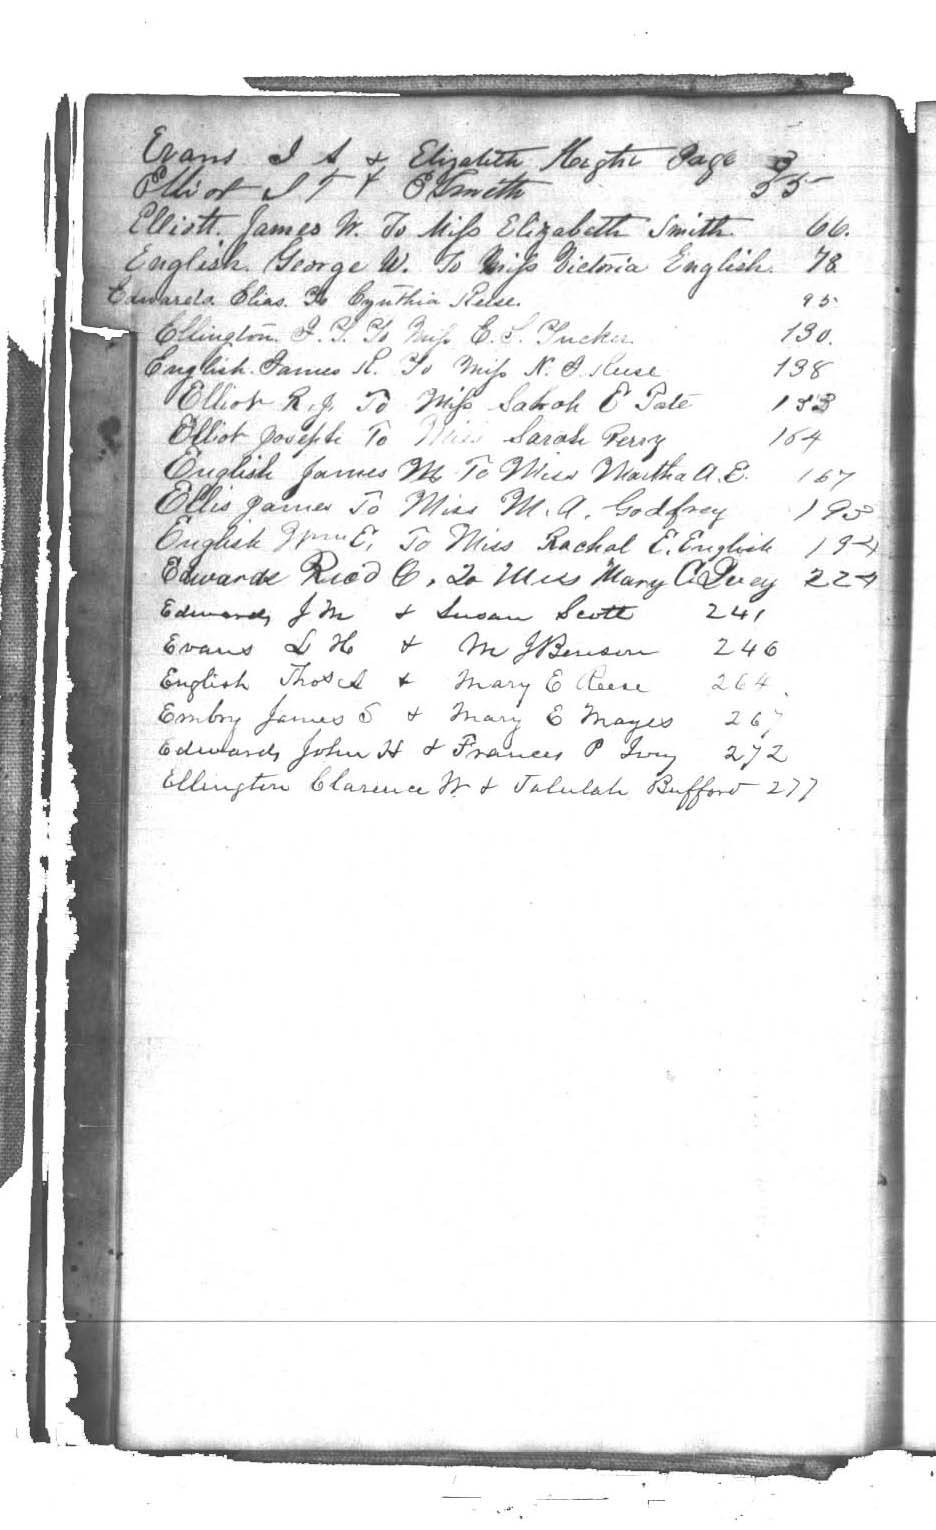 Evans J S & Elizabeth Page 3
Elliot J T & E Smith 55
Elliott. James W. To Miss Elizabeth Smith. 66.
English. George W. To Miss Victoria English. 78
Edwards. Elias. To Cynthia Reese. 95
Ellington. J. Y. To Miss E. S. Tucker. 130.
English. James R. To Miss N. J. Reese 138
Elliot R. J. To Miss Sabrah E Tate 153
Elliot Joseph To Miss Sarah Perry 164
English James M To Miss Martha A. E. 167
Ellis James To Miss M. A. Godfrey 193
English Wm E. To Miss Rachal E. English 194
Edwards Reod C. To Miss Mary C. Ivey 224
Edwards J M & Susan Scott 241
Evans L H & M J Benson 246
English Thos A & Mary E Reese 264
Embry James S & Mary E Mayes 267
Edwards John H & Frances P Ivy 272
Ellington Clarence W & Talulah Buffort 277